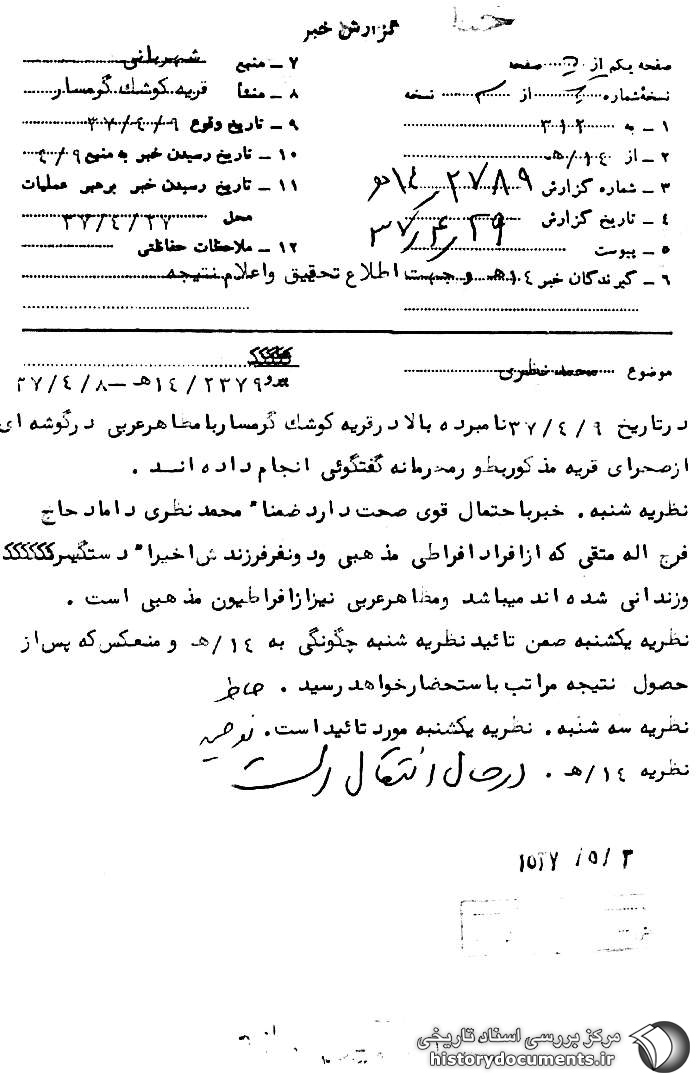 گزارش خبر
صفحه یکم از صفحه
نسخه شماره از نسخه
۱ ـ به ۳۱۲
۲ ـ از ۱۴/هـ
۳ ـ شماره گزارش ۱۴ ۲۷۸۹
۴ ـ تاریخ گزارش ۳۷/۴/۲۹
۵ ـ پیوست
۶ ـ گیرندگان خبر ۱۴هـ و جهت اطلاع تحقیق و اعلام نتیجه
۷ ـ منبع شهربانی
۸ ـ منشأ قریه کوشک گرمسار
۹ ـ تاریخ وقوع ۳۷/۴/۹
۱۰ ـ تاریخ رسیدن خبر به منبع ۴/۹
۱۱ ـ تاریخ رسیدن خبر برهبر عملیات
محل ۳۷/۴/۲۷
۱۲ ـ ملاحظات حفاظتی
موضوع محمد نظری
پیرو ۱۴/۲۳۷۹هـ ـ ۳۷/۴/۸
در تاریخ ۳۷/۴/۹ نامبرده بالا در قریه کوشک گرمسار با مظاهر عربی در گوشه ای
از صحرای قریه مذکور بطور محرمانه گفتگوئی انجام داده اند .
نظریه شنبه . خبر باحتمال قوی صحت دارد ضمنا" محمد نظری داماد حاج
فرج اله متقی که از افراد افراطی مذهبی و دو نفر فرزندش اخیرا" دستگیر
و زندانی شده اند میباشد و مظاهر عربی نیز از افراطیون مذهبی است .
نظریه یکشنبه ضمن تائید نظریه شنبه چگونگی به ۱۴/هـ و منعکس که پس از
حصول نتیجه مراتب باستحضار خواهد رسید .
نظریه سه شنبه . نظریه یکشنبه مورد تائید است .
نظریه ۱۴/هـ . در حال انتقال است
مرکز بررسی اسناد تاریخی
historydocuments.ir